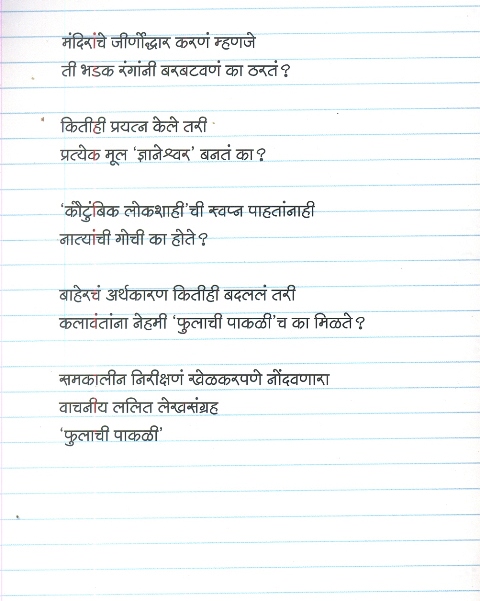 मंदिरांचे जीर्णोद्धार करणं म्हणजे
ती भडक रंगांनी बरबटवणं का ठरतं?
कितीही प्रयत्न केले तरी
प्रत्येक मूल ‘ज्ञानेश्वर’ बनतं का?
‘कौटुंबिक लोकशाही’ची स्वप्न पाहतांनाही
नात्यांची गोची का होते?
बाहेरचं अर्थकारण कितीही बदललं तरी
कलावंतांना नेहमी ‘फुलाची पाकळी’च का मिळते?
समकालीन निरीक्षणं खेळकरपणे नोंदवणारा
वाचनीय ललित लेखसंग्रह
‘फुलाची पाकळी’